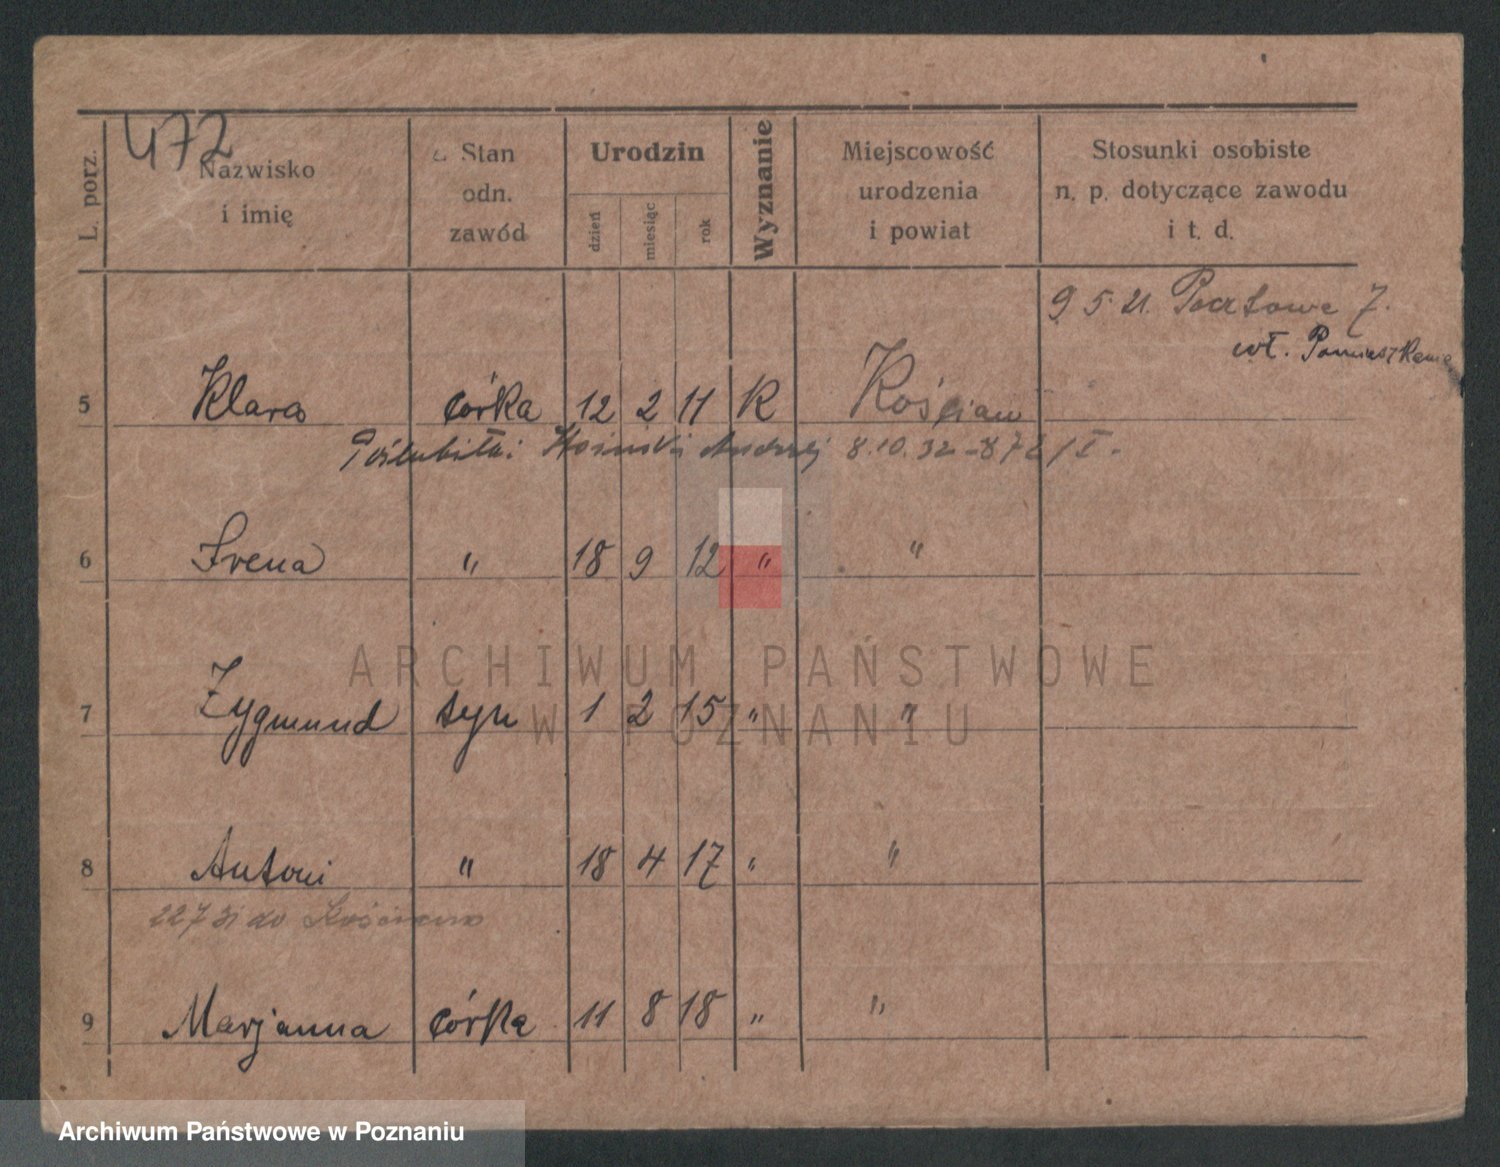 472
L. porz.
Nazwisko i imię
Stan odn. zawód
Urodzin
dzień
miesiąc
rok
Wyznanie
Miejscowość urodzenia i powiat
Stosunki osobiste n. p. dotyczące zawodu i t. d.
9 5 21. Pocztowa 7.
wł.
5 Klara córka 12 2 11 K Kościan
Poślubiła: Andrzej 8.10.32
6 Irena " 18 9 12 " "
7 Zygmund syn 1 2 15 " "
8 Antoni " 18 4 17 " "
227 31 do
9 Marjanna córka 11 8 18 " "
ARCHIWUM PAŃSTWOWE
W POZNANIU
Archiwum Państwowe w Poznaniu